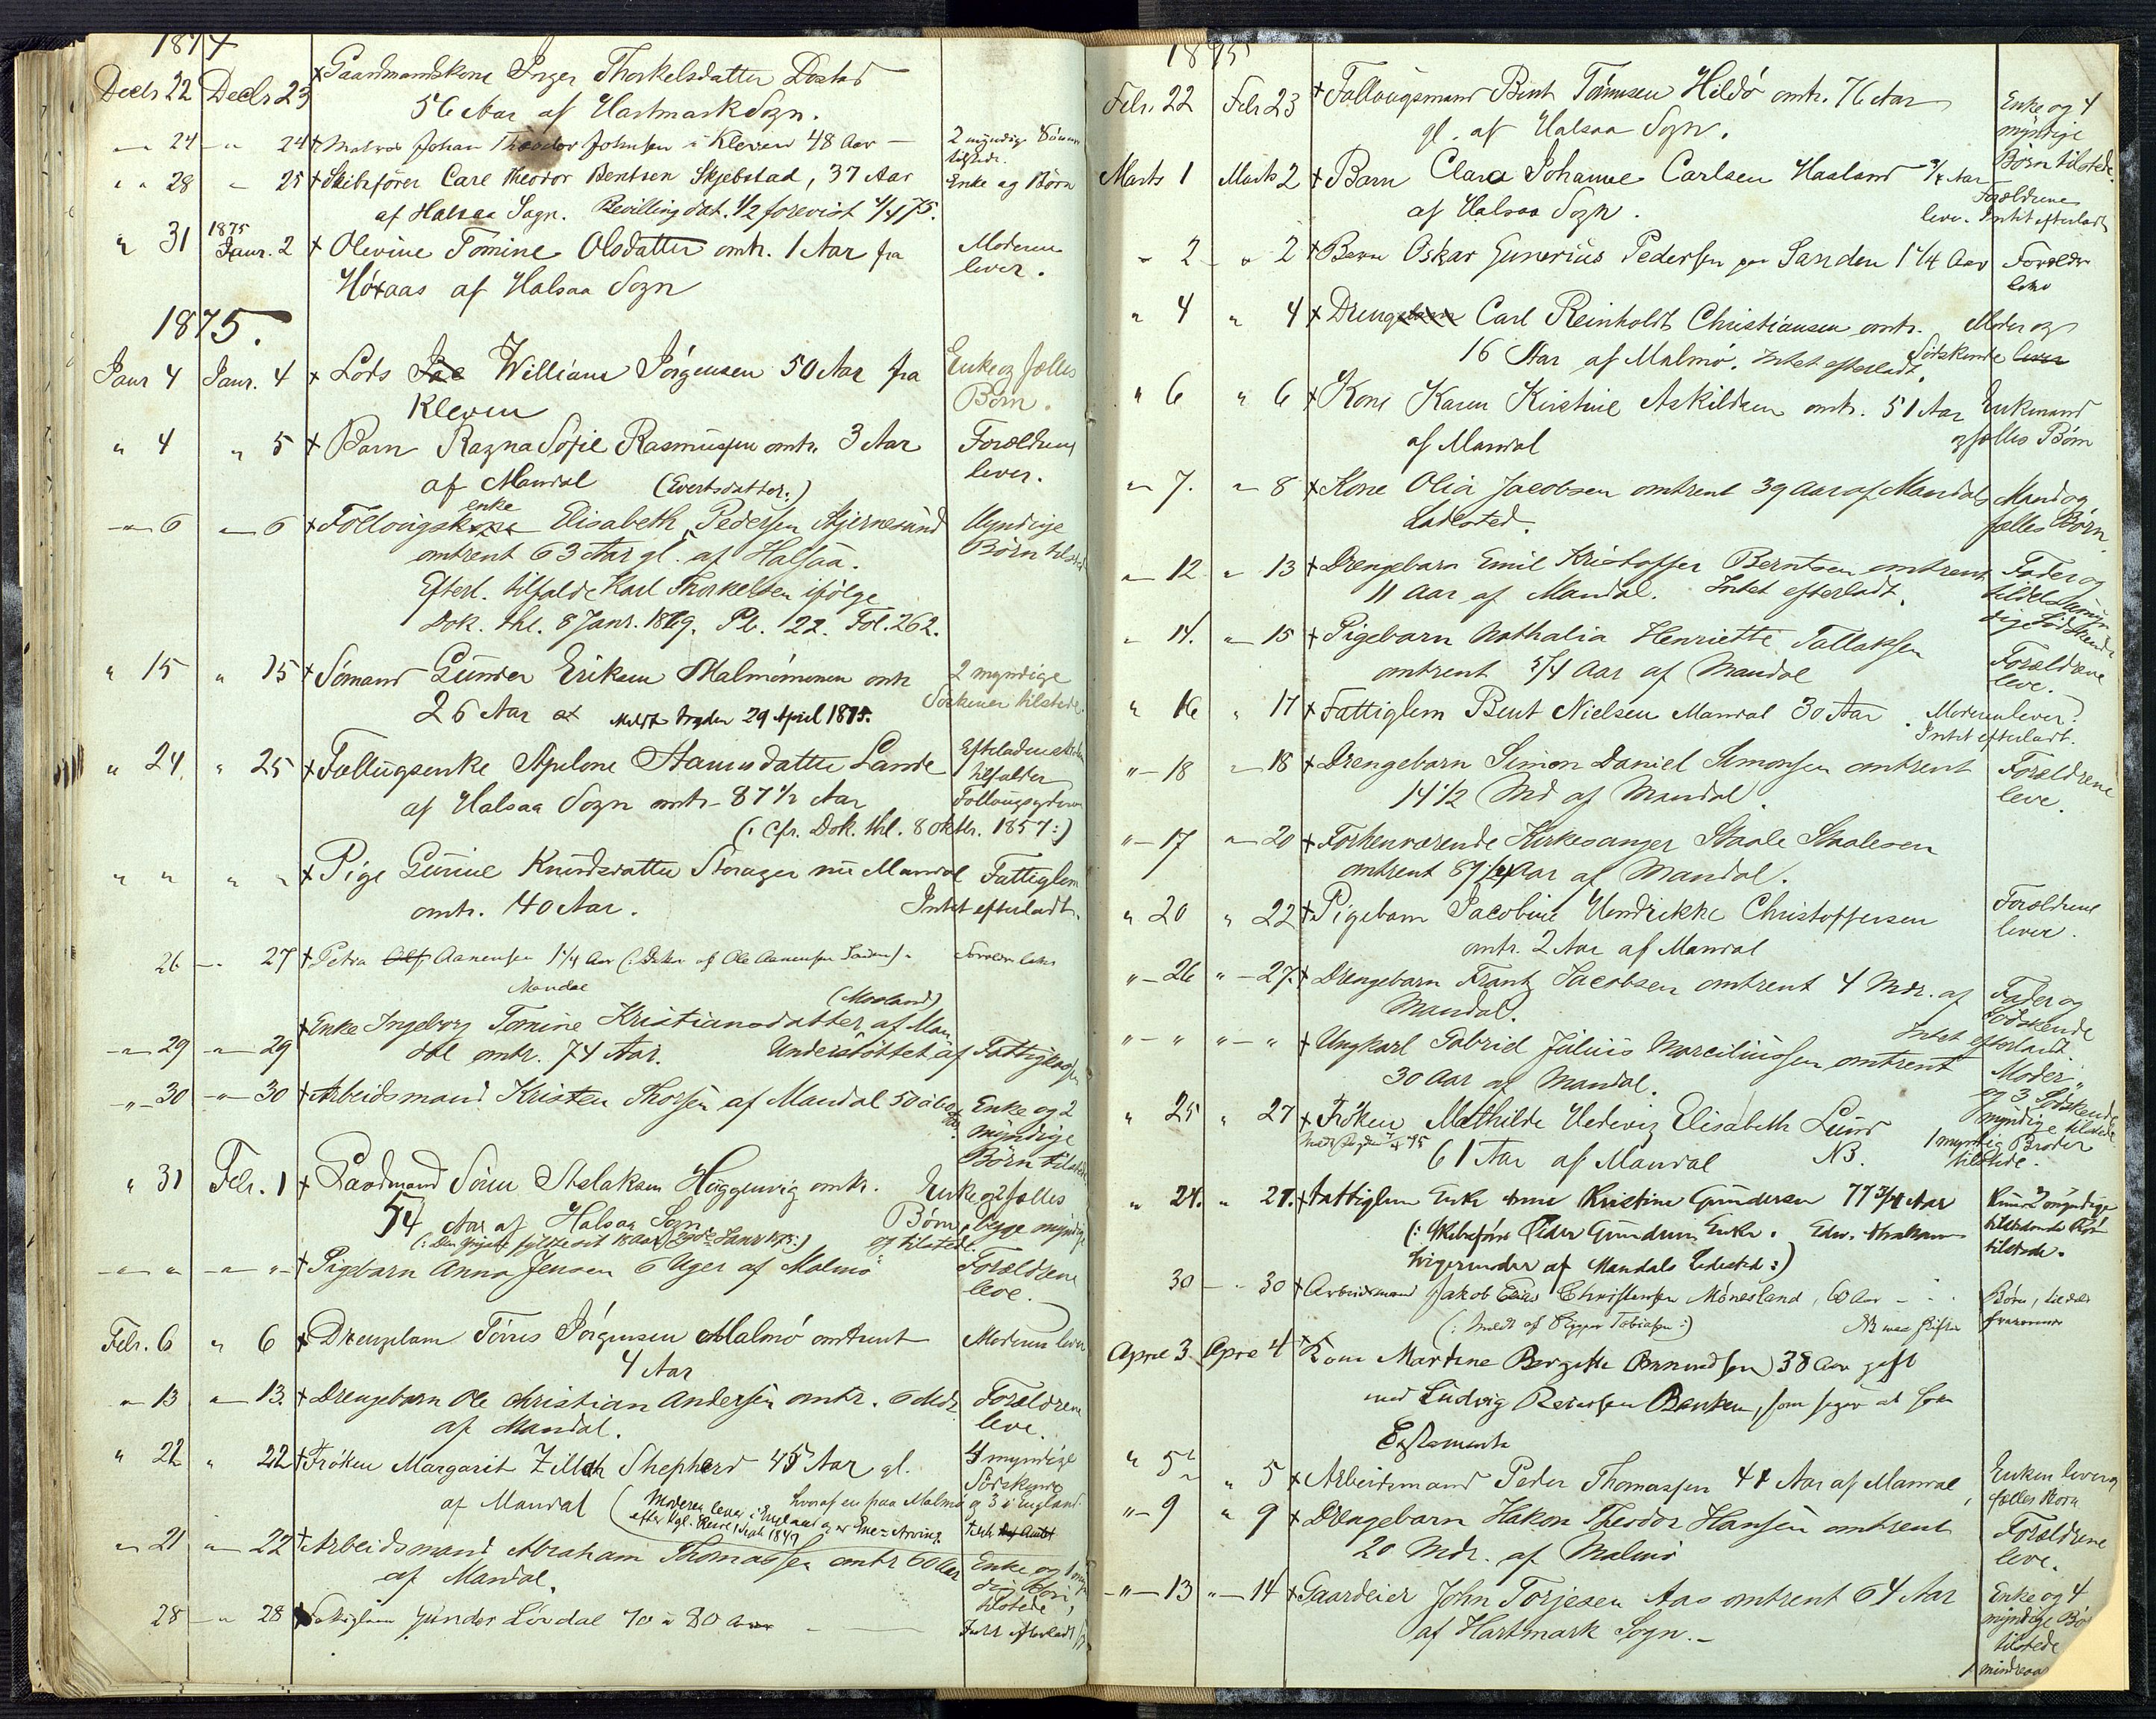 1874
Decbr 22 Decbr 23 × Gaardmandskone Inger Thorkelsdatter Dostad
56 Aar af Hartmark Sogn.
— 24 — " 24 × Matros Johan Theodor Johnsen i Kleven 48 Aar — 2 myndige Sönner
tilstede.
" " 28 " 25 × Skibsförer Carl Theodor Bentsen Skjebstad, 37 Aar Enke og Börn
af Halsaa Sogn. Bevilling dat. 1/2 forevist 4/4 75.
" 31 1875 Janr. 2 × Olevine Tomine Olsdatter omtr. 1 Aar fra Moderen
Höxaas af Halsaa Sogn lever.
1875.
Janr 4 Janr. 4 × Lods William Jörgensen 50 Aar fra Enke og fælles
Kleven Börn.
" 4 " 5 × Barn Ragna Sofie Rasmussen omtr. 3 Aar Forældrene
af Mandal lever.
(Evertsdatter.)
enke
— 6 — 6 × Föllougskone Elisabeth Pedersen Stjernesund Myndige
omtrent 63 Aar gl. af Halsaa. Börn tilstede
Efterl. tilfalde Karl Thorkelsen ifölge
Dok. thl. 8 Janr. 1869. Pb. 22. Fol. 262.
" 15 " 15 × Sömand Gunder Eriksen Malmömonen omtr 2 myndige
26 Aar Meldt Byden 29 April 1875. Söskener tilstede.
" 24 " 25 × Föllugsenke Apelone Stamsdatter Lande Efterladenskaben
af Halsaa Sogn omtr. 87 1/2 Aar tilfalder
Föllougsyderen
(: cfr. Dok. thl. 8 Oktbr. 1857 :)
" " " " × Pige Gunile Knudsdatter Storager nu Mandal Fattiglem
omtr. 40 Aar. Intet efterladt.
26 — 27 × Petra Aanensen 1 1/4 Aar (: Datter af Ole Aanensen Sanden) " Forældre leve
Mandal
(Moeland)
× Enke Ingeborg Tomine Kristiansdatter af Man
— 29 — 29 dal omtr. 74 Aar. Understöttet af Fattigkassen
— " — 30 — " 30 × Arbeidsmand Kristen Thorsen af Mandal 50 à 60 Aar. Enke og 2
myndige
Börn tilstede
" 31 Febr. 1 × Gaardmand Sören Aslaksen Høggenvig omtr. Enke og 2 fælles
54 Aar af Halsaa Sogn Börn, begge myndige
(: Den yngste fyldte sit 18 Aar 29de Janr 1875 :) og tilstede.
— " — " × Pigebarn Anna Jensen 6 Uger af Malmö Forældrene
leve.
Febr. 6 " 6 × Drengebarn Törres Jörgensen Malmö omtrent Moderen lever
4 Aar
— 13 — 13. × Drengebarn Ole Christian Andersen omtr. 6 Mdr. Forældrene
af Mandal. leve.
" 22 " 22 × Fröken Margarit Zillah Shepherd 45 Aar gl. 4 myndige
af Mandal Södskende
hvoraf en paa Malmö og 3 i England.
(Moderen lever i England og er Ene-Arving
efter kgl. Resol. 1 Sept 1849
— 21 — 22 × Arbeidsmand Abraham Thomassen omtr 60 Aar Enke og 1 myn
af Mandal. dig Börn,
tilstede
28 — " 28 × Fattiglem Gunder Lindal 70 à 80 Aar — Intet efterladt
1875
Febr. 22 Febr 23 × Föllougsmand Bent Tönnesen Hildö omtr. 76 Aar Enke og 4
gl. af Halsaa Sogn. myndige
Börn tilstede.
Marts 1 Marts 2 × Barn Clara Johanne Carlsen Haaland 3/4 Aar Forældrene
af Halsaa Sogn. lever. Intet efterladt
" 2 " 2 × Barn Oskar Gunerius Pedersen paa Sanden 1 1/4 Aar Forældre
leve
" 4 " 4 × Drengebarn Carl Reinholdt Christiansen omtr. Moder og
16 Aar af Malmö. Intet efterladt. Södskende lever
" 6 " 6 × Kone Karen Kirstine Askildsen omtr. 51 Aar Enkemand
af Mandal og fælles Börn
— 7. — 8 × Kone Olia Jacobsen omtrent 39 Aar af Mandals Mand og
Ladested. fælles Börn.
— 12 — 13 × Drengebarn Emil Kristoffer Berntsen omtrent Fader og
11 Aar af Mandal. Intet efterladt. tildels umyn
dige Södskende
— 14. — 15 × Pigebarn Nathalia Henriette Tallaksen Forældrene
omtrent 5/4 Aar af Mandal leve.
" 16 " 17 × Fattiglem Bent Nielsen Mandal 30 Aar. Moderen lever.
Intet efterladt.
" — 18 — 18 × Drengebarn Simon Daniel Simonsen omtrent Forældrene
14 1/2 Md af Mandal. leve.
" — 17 " — 20 × Forhenværende Kirkesanger Staale Staalesen
omtrent 87 1/4 Aar af Mandal.
" 20 " 22 × Pigebarn Jacobine Hendrikke Christoffersen Forældrene
omtr. 2 Aar af Mandal lever.
" — 26 " — 27. × Drengebarn Frantz Jacobsen omtrent 4 Mdr. af Fader og
Mandal. Södskende
Intet efterladt.
" — " " — " × Ungkarl Gabriel Julius Marciliussen omtrent Moder
30 Aar af Mandal. og 3 Södskende
myndige tilstede
" 25 " 27 × Fröken Mathilde Hedevig Elisabeth Lund 1 myndig Broder
61 Aar af Mandal NB. tilstede.
" 24. " 27. × Fattiglem Enke Anne Kristine Gundersen 77 3/4 Aar
(: Skibsförer Peder Gundersens Enke. Edv. Abrahams
Svigermoder af Mandals Ladested :) tilstede.
30 — " 30 × Arbeidsmand Jakob Elias Christensen Mönesland, 60 Aar — Börn,
(: Meldt af Skipper Tobiasen :)
April 3 Apre 4 × Kone Martine Bergitte Omundsen 38 Aar gift
med Ludvig Reiersen Banken, som siger at have
Testamente
" 5 " 5 × Arbeidsmand Peder Thomassen 44 Aar af Mandal, Enken lever og
fælles Börn
" — 9 " 9 × Drengebarn Hakon Theodor Hansen omtrent Forældrene
20 Mdr. af Malmö leve.
— " — 13 " — 14 × Gaardeier John Torjesen Aas omtrent 64 Aar Enke og 4
af Hartmark Sogn. — myndige Bö
tilstede
1 mindreaa